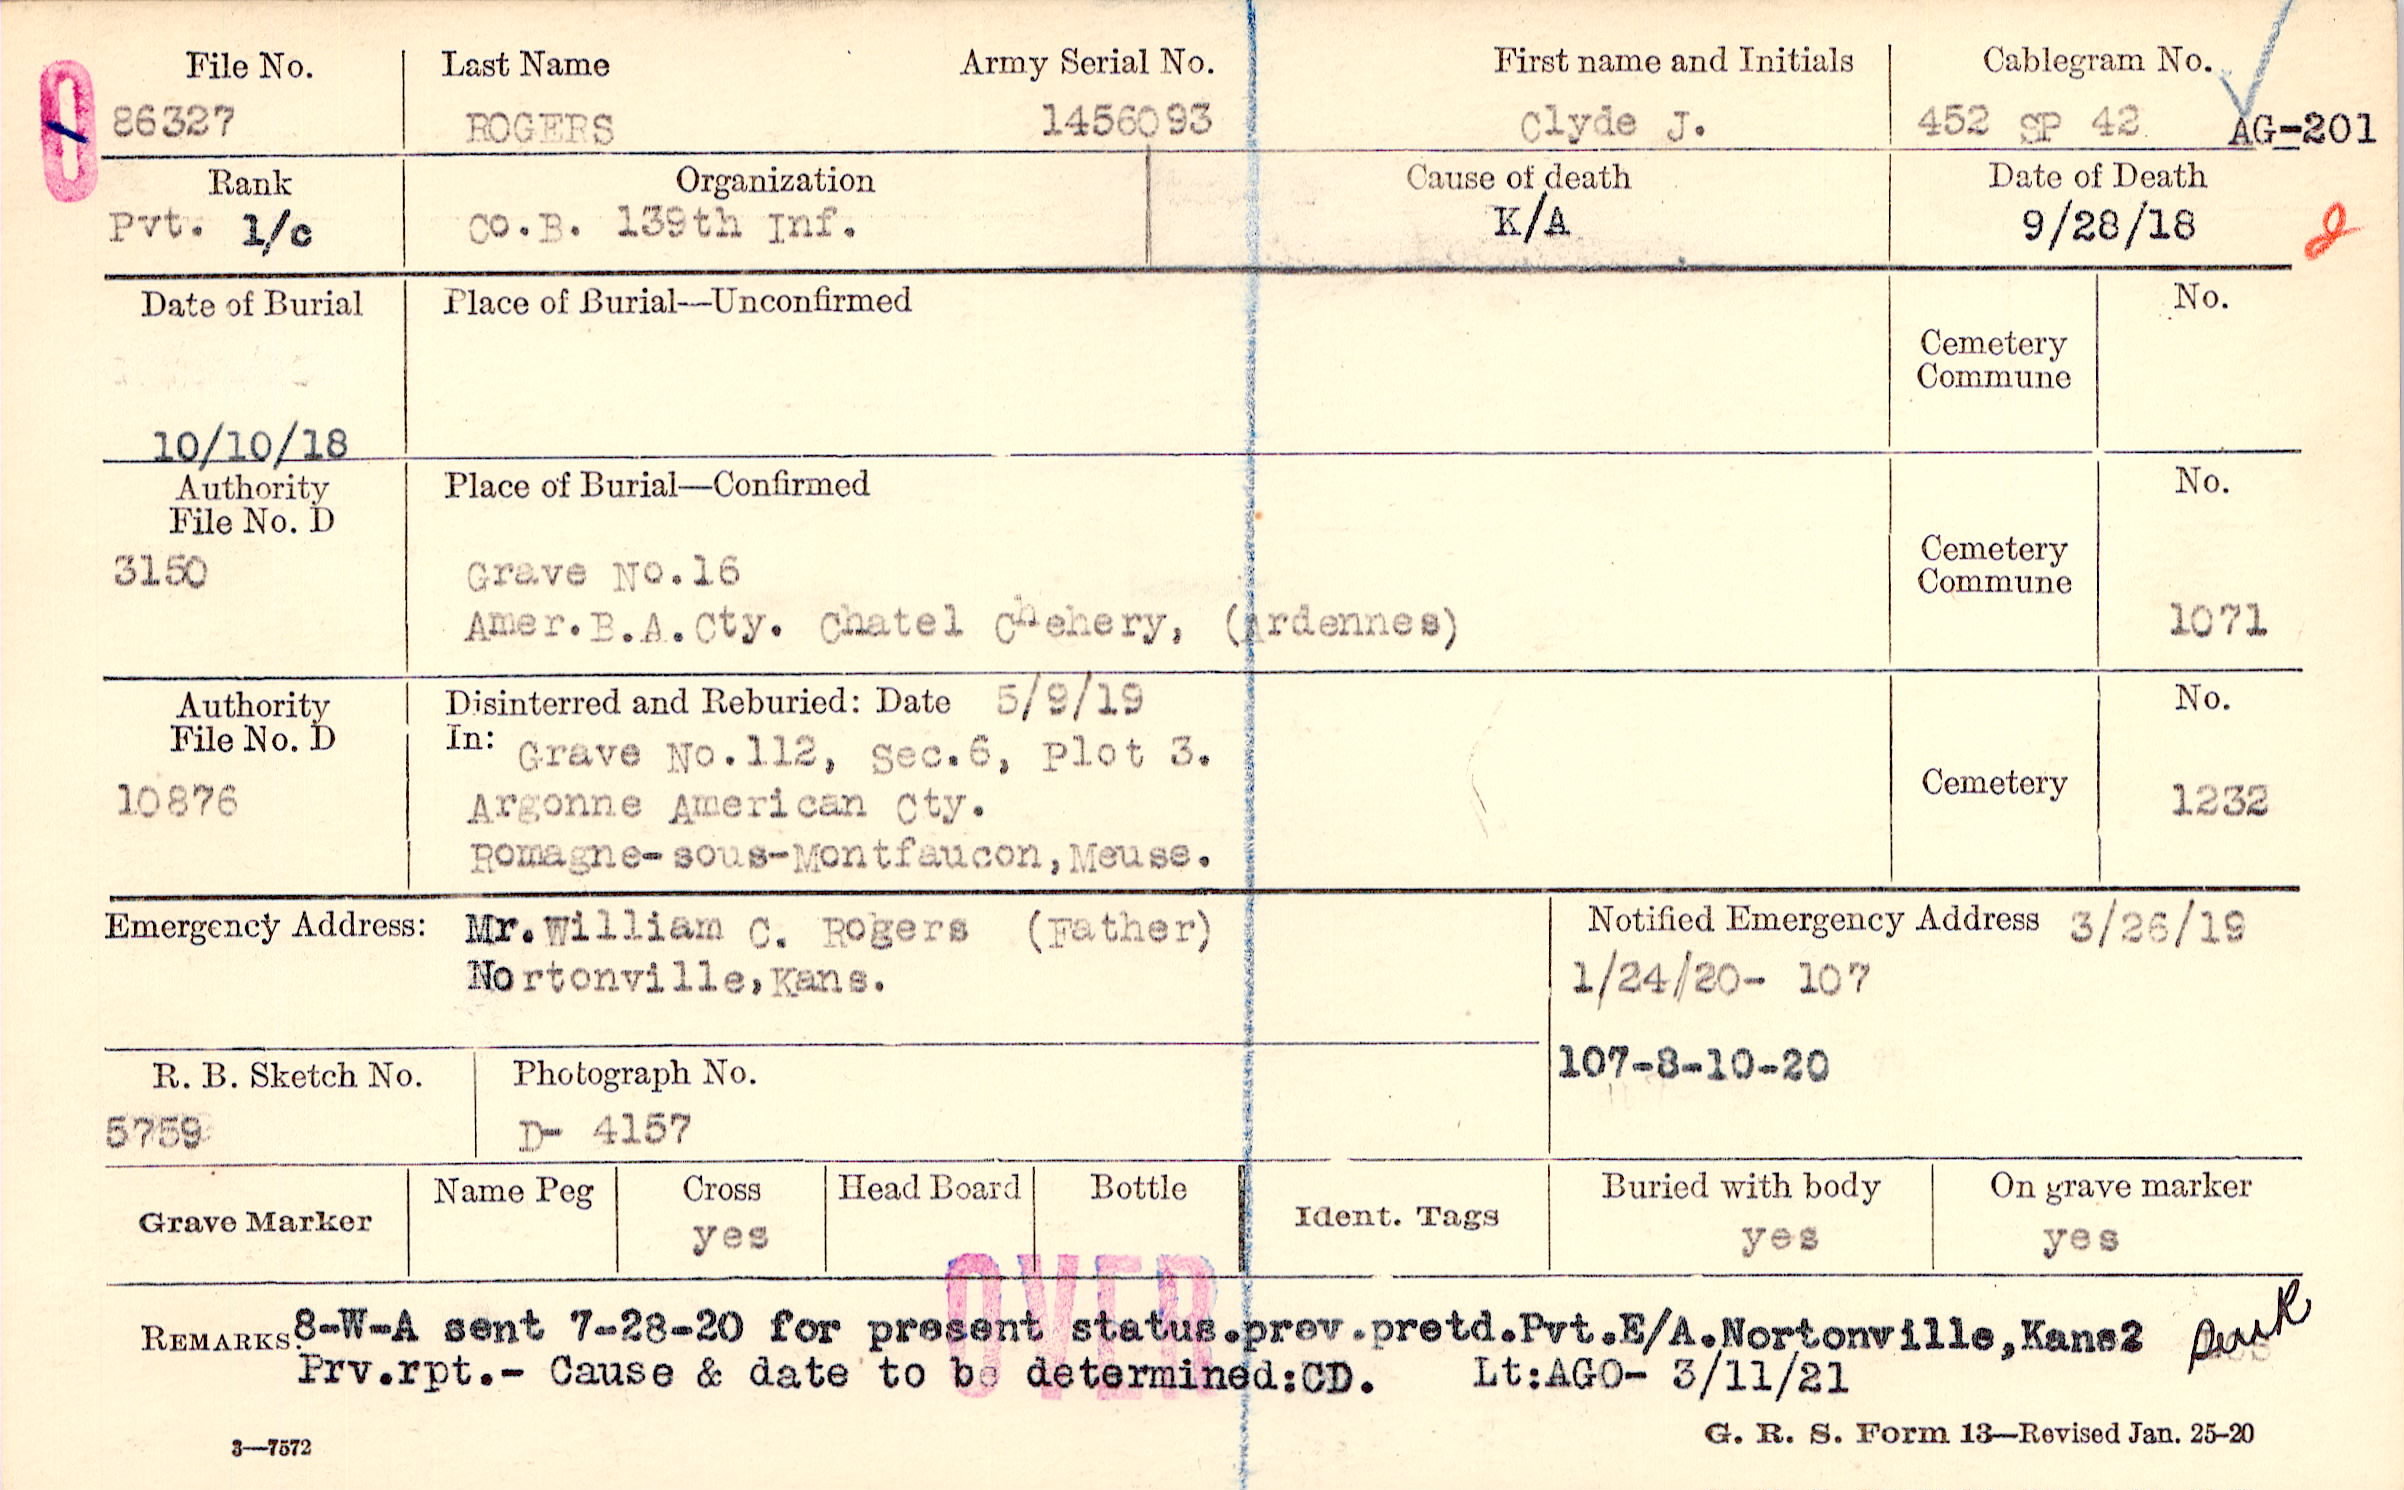 File No. Last Name Army Serial No. First name and Initials Cablegram No.
86327 ROGERS 1456093 Clyde J. 452 SP 42 AG-201
Rank Organization Cause of death Date of Death
Pvt. 1/c Co.B. 139th Inf. K/A 9/28/18
Date of Burial Place of Burial—Unconfirmed No.
Cemetery
Commune
10/10/18
Authority Place of Burial—Confirmed No.
File No. D
Cemetery
3150 Grave No.16 Commune
Amer.B.A.Cty. Chatel Chehery, (Ardennes) 1071
Authority Disinterred and Reburied: Date 5/9/19 No.
File No. D In: Grave No.112, Sec.6, Plot 3.
Cemetery
10876 Argonne American Cty. 1232
Romagne-sous-Montfaucon,Meuse.
Emergency Address: Mr.William C. Rogers (Father) Notified Emergency Address 3/26/19
Nortonville,Kans. 1/24/20- 107
R. B. Sketch No. Photograph No. 107-8-10-20
5759 D- 4157
Grave Marker Name Peg Cross Head Board Bottle Ident. Tags Buried with body On grave marker
yes yes yes
OVER
REMARKS: 8-W-A sent 7-28-20 for present status.prev.pretd.Pvt.E/A.Nortonville,Kans2
Prv.rpt.- Cause & date to be determined:CD. Lt:AGO- 3/11/21
3—7572 G. R. S. Form 13—Revised Jan. 25-20